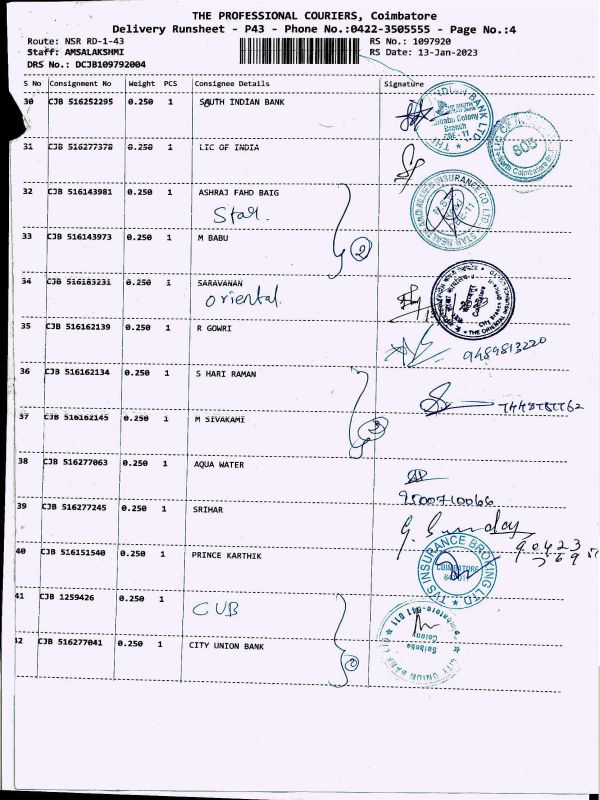 THE PROFESSIONAL COURIERS, Coimbatore
Delivery Runsheet - P43 - Phone No.:0422-3505555 - Page No.:4
Route: NSR RD-1-43 RS No.: 1097920
Staff: AMSALAKSHMI RS Date: 13-Jan-2023
DRS No.: DCJB109792004
S No Consignment No Weight PCS Consignee Details Signature
30 CJB 516252295 0.250 1 SOUTH INDIAN BANK
31 CJB 516277378 0.250 1 LIC OF INDIA
32 CJB 516143981 0.250 1 ASHRAJ FAHD BAIG
Star.
33 CJB 516143973 0.250 1 M BABU
2
34 CJB 516183231 0.250 1 SARAVANAN
oriental.
35 CJB 516162139 0.250 1 R GOWRI
9489813220
36 CJB 516162134 0.250 1 S HARI RAMAN
37 CJB 516162145 0.250 1 M SIVAKAMI
2
38 CJB 516277063 0.250 1 AQUA WATER
9500710066
39 CJB 516277245 0.250 1 SRIHAR
G. Sunday
90423
40 CJB 516151540 0.250 1 PRINCE KARTHIK
TVS INSURANCE BROKING LTD
COIMBATORE
41 CJB 1259426 0.250 1
CUB
42 CJB 516277041 0.250 1 CITY UNION BANK
2
Saibaba Colony
CITY UNION BANK LTD